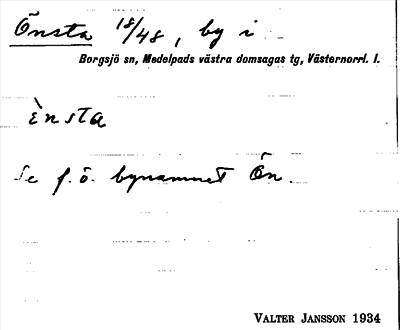 Önsta 18/48, by i
Borgsjö sn, Medelpads västra domsagas tg, Västernorrl. l.
ènsta
Se f. ö. bynamnet Ön.
VALTER JANSSON 1934